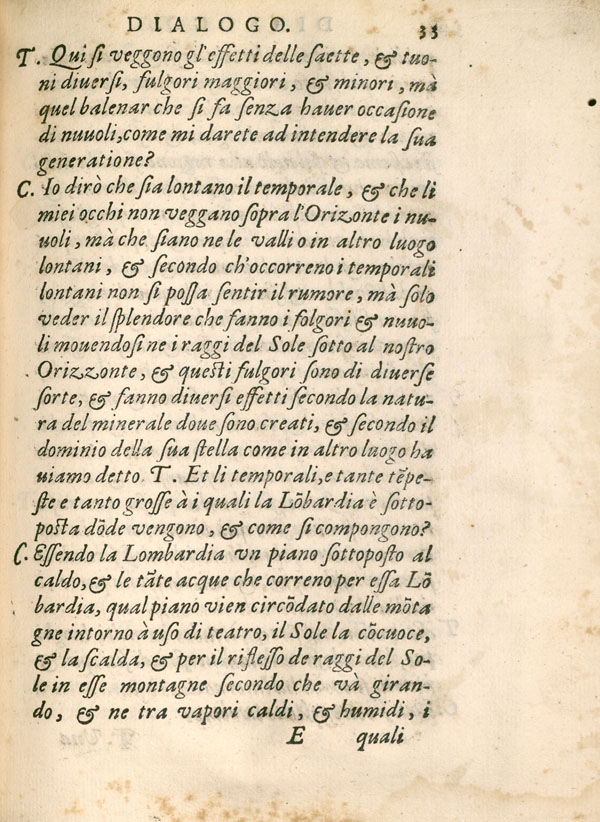 DIALOGO. 33
T. Qui si veggono gl'effetti delle saette, & tuo-
ni diuersi, fulgori maggiori, & minori, mà
quel balenar che si fa senza hauer occasione
di nuuoli, come mi darete ad intendere la sua
generatione?
C. Io dirò che sia lontano il temporale, & che li
miei occhi non veggano sopra l'Orizonte i nu-
uoli, mà che siano ne le valli o in altro luogo
lontani, & secondo ch'occorreno i temporali
lontani non si possa sentir il rumore, mà solo
veder il splendore che fanno i folgori & nuuo-
li mouendosi ne i raggi del Sole sotto al nostro
Orizzonte, & questi fulgori sono di diuerse
sorte, & fanno diuersi effetti secondo la natu-
ra del minerale doue sono creati, & secondo il
dominio della sua stella come in altro luogo ha
uiamo detto T. Et li temporali, e tante tẽpe-
ste e tanto grosse à i quali la Lõbardia è sotto-
posta dõde vengono, & come si compongono?
C. Essendo la Lombardia vn piano sottoposto al
caldo, & le tãte acque che correno per essa Lõ
bardia, qual piano vien circõdato dalle mõta
gne intorno à uso di teatro, il Sole la cõcuoce,
& la scalda, & per il riflesso de raggi del So-
le in esse montagne secondo che và giran-
do, & ne tra vapori caldi, & humidi, i
E quali